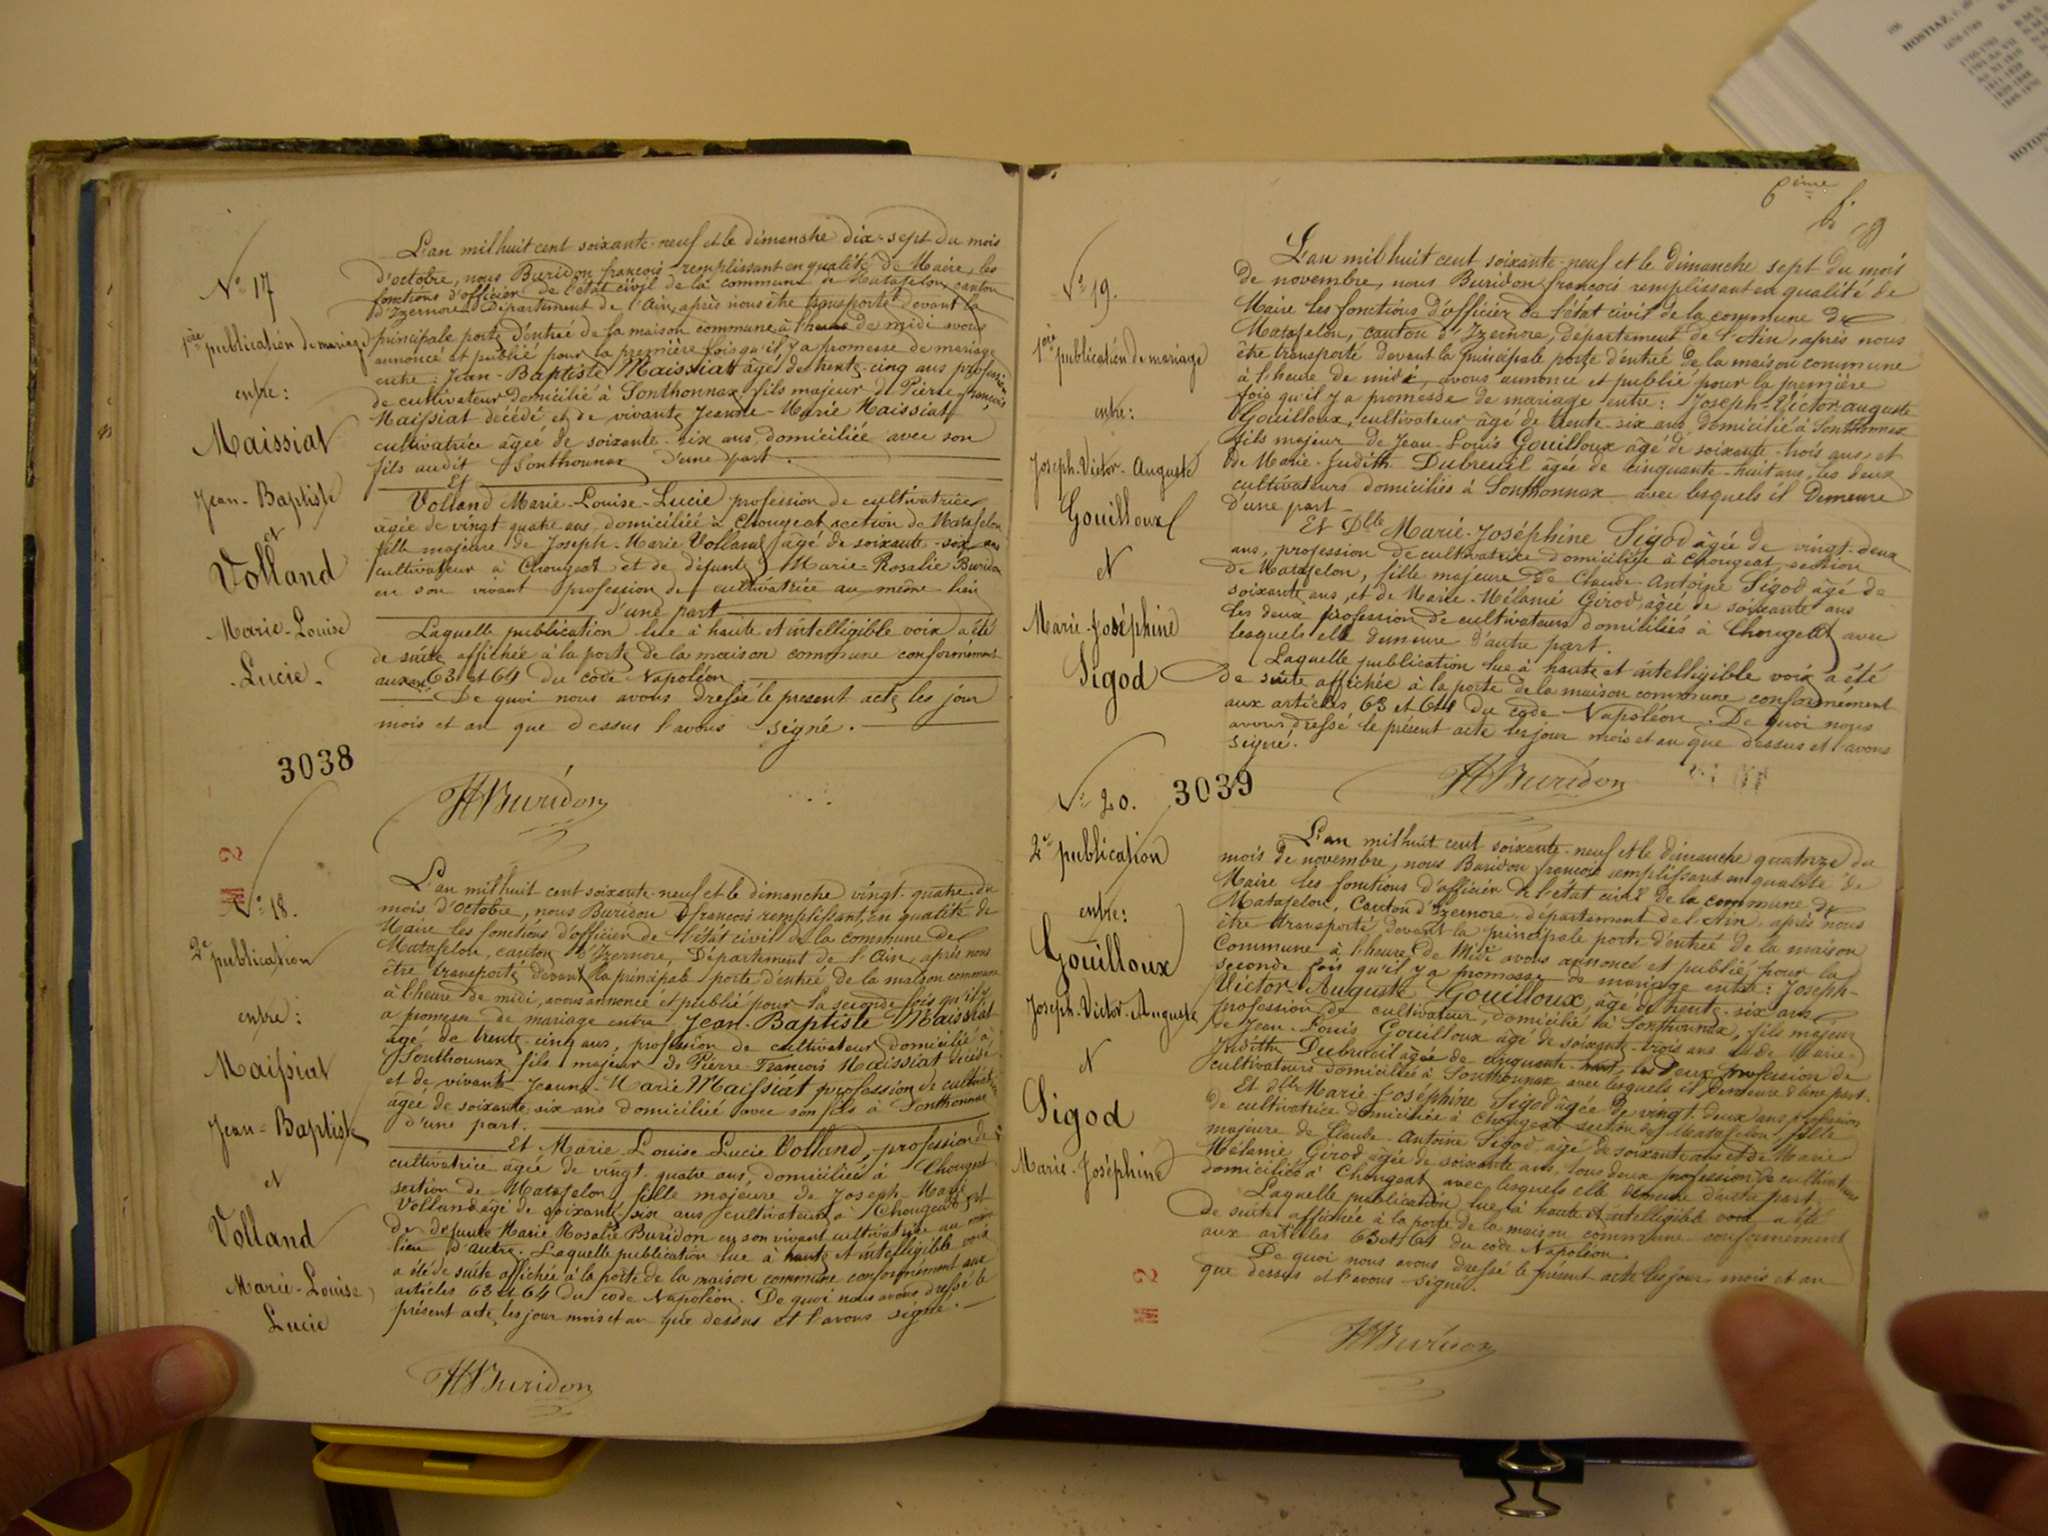 N° 17
1ère publication de mariage
entre:
Maissiat
Jean-Baptiste
et
Volland
Marie-Louise
Lucie.
L'an mil huit cent soixante-neuf et le dimanche dix-sept du mois
d'octobre, nous Buridon françois remplissant en qualité de Maire, les
fonctions d'officier de l'état civil de la commune de Matafelon, canton
d'Izernore Département de l'Ain, après nous être transporté devant la
principale porte d'entrée de la maison commune à l'heure de midi avons
annoncé et publié pour la première fois qu'il y a promesse de mariage
entre: Jean-Baptiste Maissiat âgé de trente-cinq ans profession
de cultivateur domicilié à Sonthonnax fils majeur de Pierre-françois
Maissiat décédé et de vivante Jeanne-Marie Maissiat
cultivatrice âgée de soixante-six ans, domiciliée avec son
fils audit Sonthonnax d'une part.
Et
Volland Marie-Louise-Lucie profession de cultivatrice
âgée de vingt quatre ans, domiciliée à Chougeat section de Matafelon
fille majeure de Joseph-Marie Volland âgé de soixante-six ans
cultivateur à Chougeat et de défunte Marie-Rosalie Buridon
en son vivant profession de cultivatrice au même lieu
d'une part
Laquelle publication lue à haute et intelligible voix a été
de suite affichée à la porte de la maison commune conformément
aux art. 63 et 64 du code Napoléon.
De quoi nous avons dressé le présent acte les jour
mois et an que dessus l'avons signé.
3038
HBuridon
N° 18.
2e publication
entre:
Maissiat
Jean-Baptiste
et
Volland
Marie-Louise
Lucie
L'an mil huit cent soixante-neuf et le dimanche vingt-quatre du
mois d'octobre, nous Buridon françois remplissant en qualité de
Maire les fonctions d'officier de l'état civil de la commune de
Matafelon, canton d'Izernore, Département de l'Ain, après nous
être transporté devant la principale porte d'entrée de la maison commune
à l'heure de midi, avons annoncé et publié pour la seconde fois qu'il y
a promesse de mariage entre Jean-Baptiste Maissiat
âgé de trente-cinq ans, profession de cultivateur domicilié à
Sonthonnax fils majeur de Pierre-François Maissiat décédé
et de vivante Jeanne-Marie Maissiat profession de cultivatrice
âgée de soixante-six ans domiciliée avec son fils à Sonthonnax
d'une part.
Et Marie Louise Lucie Volland, profession de
cultivatrice âgée de vingt quatre ans, domiciliée à Chougeat
section de Matafelon fille majeure de Joseph-Marie
Volland âgé de soixante-six ans cultivateur à Chougeat et
de défunte Marie Rosalie Buridon en son vivant cultivatrice au même
lieu d'autre. Laquelle publication lue à haute et intelligible voix
a été de suite affichée à la porte de la maison commune conformément aux
articles 63 et 64 du code Napoléon. De quoi nous avons dressé le
présent acte les jour mois et an que dessus et l'avons signé.
HBuridon
6ème
N° 19.
1ère publication de mariage
entre:
Joseph-Victor-Auguste
Gouilloux
et
Marie-Joséphine
Sigod
L'an mil huit cent soixante-neuf et le dimanche sept du mois
de novembre, nous Buridon françois remplissant en qualité de
Maire les fonctions d'officier de l'état civil de la commune de
Matafelon, canton d'Izernore, département de l'Ain, après nous
être transporté devant la principale porte d'entrée de la maison commune
à l'heure de midi, avons annoncé et publié pour la première
fois qu'il y a promesse de mariage entre: Joseph-Victor-auguste
Gouilloux, cultivateur âgé de trente-six ans domicilié à Sonthonnax
fils majeur de Jean-Louis Gouilloux âgé de soixante-trois ans, et
de Marie-Judith Dubreuil âgée de cinquante-huit ans, les deux
cultivateurs domiciliés à Sonthonnax avec lesquels il demeure
d'une part
Et Dlle Marie-Joséphine Sigod âgée de vingt-deux
ans, profession de cultivatrice domiciliée à Chougeat, section
de Matafelon, fille majeure de Claude-Antoine Sigod âgé de
soixante ans, et de Marie-Mélanie Girod, âgée de soixante ans
les deux profession de cultivateurs domiciliés à Chougeat avec
lesquels elle demeure d'autre part.
Laquelle publication lue à haute et intelligible voix a été
de suite affichée à la porte de la maison commune conformément
aux articles 63 et 64 du code Napoléon. De quoi nous
avons dressé le présent acte les jour mois et an que dessus et l'avons
signé.
HBuridon
3039
N° 20.
2e publication
entre:
Gouilloux
Joseph-Victor-Auguste
et
Sigod
Marie-Joséphine
L'an mil huit cent soixante-neuf et le dimanche quatorze du
mois de novembre, nous Buridon françois remplissant en qualité de
Maire les fonctions d'officier de l'état civil de la commune de
Matafelon, Canton d'Izernore, département de l'Ain, après nous
être transporté devant la principale porte d'entrée de la maison
Commune à l'heure de Midi avons annoncé et publié pour la
seconde fois qu'il y a promesse de mariage entre: Joseph-
Victor-Auguste Gouilloux, âgé de trente-six ans
profession de cultivateur, domicilié à Sonthonnax, fils majeur
de Jean-Louis Gouilloux âgé de soixante-trois ans et de Marie-
Judith Dubreuil âgée de cinquante-huit, les deux profession de
cultivateurs domiciliés à Sonthonnax avec lesquels il demeure d'une part.
Et dlle Marie-Joséphine Sigod âgée de vingt-deux ans profession
de cultivatrice domiciliée à Chougeat section de Matafelon, fille
majeure de Claude-Antoine Sigod âgé de soixante ans et de Marie
Mélanie Girod âgée de soixante ans, tous deux profession de cultivateurs
domiciliés à Chougeat avec lesquels elle demeure d'autre part
Laquelle publication lue à haute et intelligible voix a été
de suite affichée à la porte de la maison commune conformément
aux articles 63 et 64 du code Napoléon.
De quoi nous avons dressé le présent acte les jour, mois et an
que dessus et l'avons signé.
HBuridon
196
HOSTIAZ,